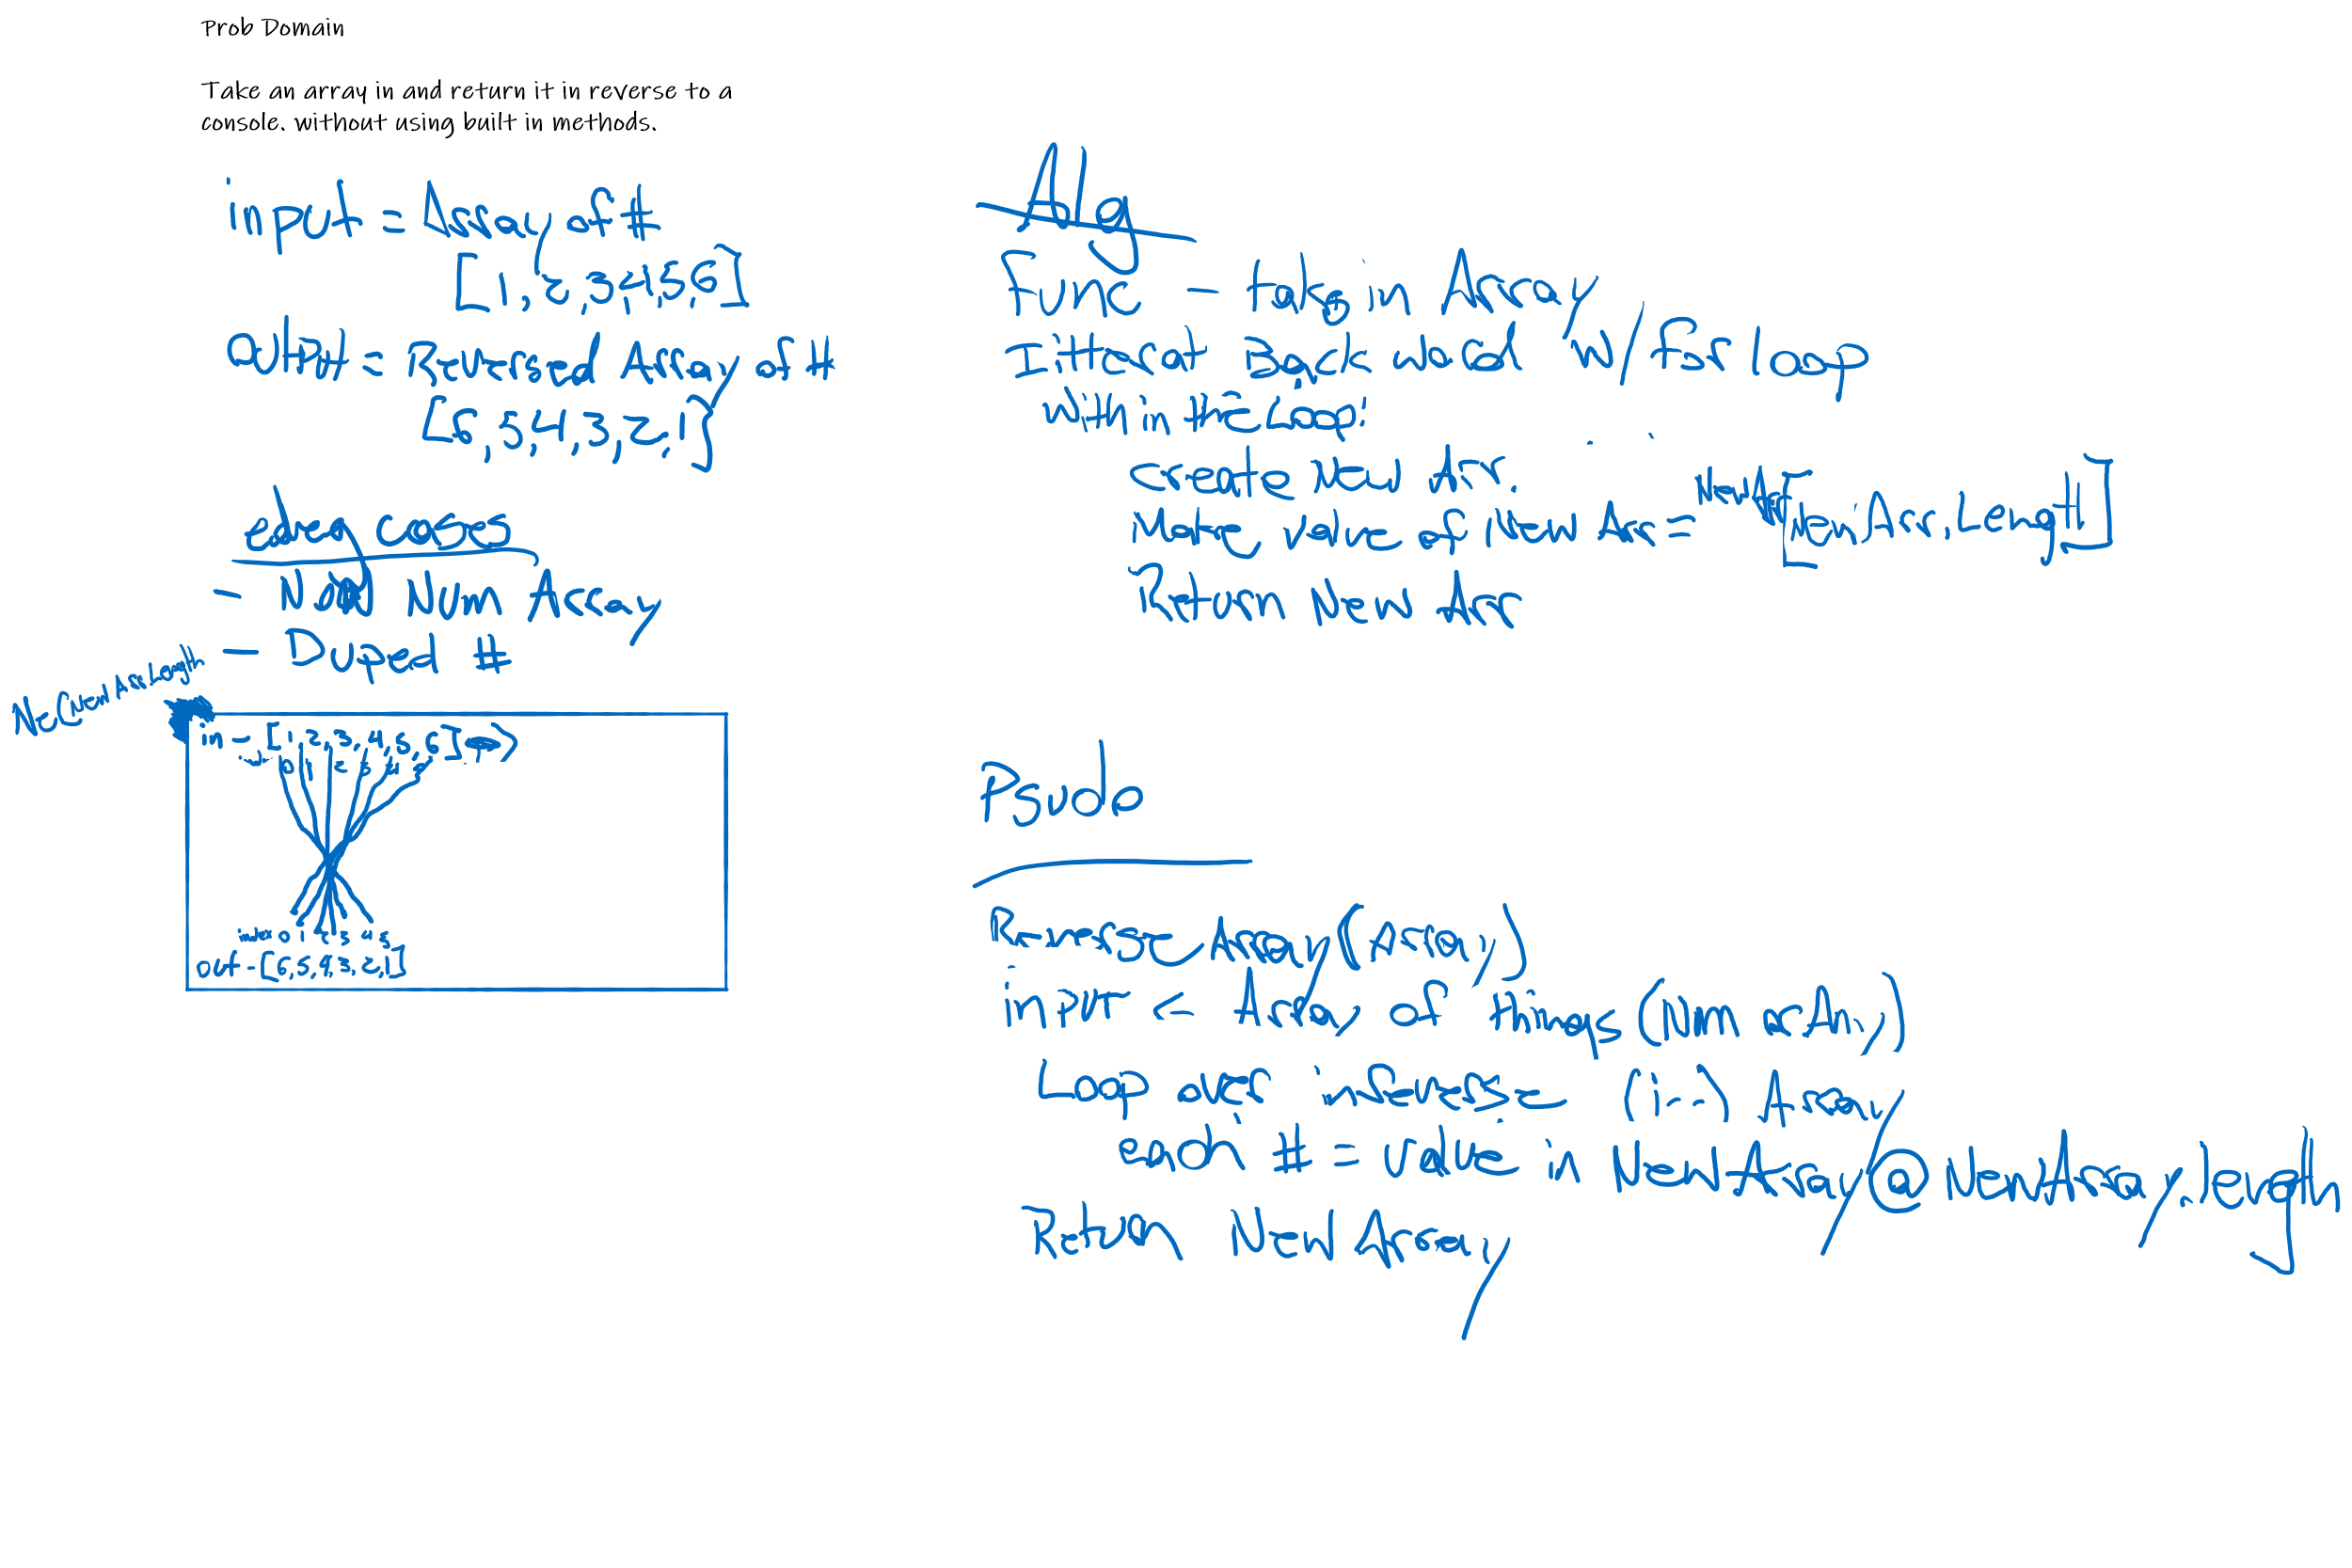 Prob Domain
Take an array in and return it in reverse to a
console. without using built in methods.
input = Array of #
[1, 2, 3, 4, 5, 6]
output = Reversed Array of #
[6, 5, 4, 3, 2, 1]
edge cases
- Non Num Array
- Duped #
in - [1, 2, 3, 4, 5, 6]
0 1 2 3 4 5
index 0 1 2 3 4 5
out - [6, 5, 4, 3, 2, 1]
Alg
Func - take in Array
Itterat Backward w/ for loop
within the Loop:
create New Arr.
Make value of New Arr = New Arr[New Arr.Length]
Return New Arr
Psudo
Reverse Array (Array)
input <- Array of things (Num or Any)
Loop over inverse (i--) Array
each # = value in New Array @ NewArray.length
Return New Array